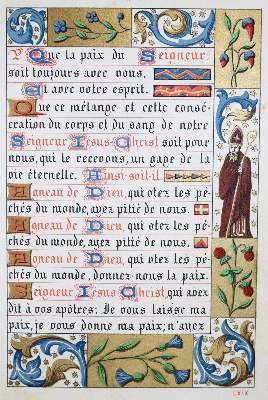 Que la paix du Seigneur
soit toujours avec vous.
Et avec votre esprit.
Que ce mélange et cette consé-
cration du corps et du sang de notre
Seigneur Jésus-Christ soit pour
nous, qui le recevons, un gage de la
vie éternelle. Ainsi-soit-il.
Agneau de Dieu, qui ôtez les pé-
chés du monde, ayez pitié de nous.
Agneau de Dieu, qui ôtez les pé-
chés du monde, ayez pitié de nous.
Agneau de Dieu, qui ôtez les pé-
chés du monde, donnez-nous la paix.
Seigneur Jésus-Christ, qui avez
dit à vos apôtres: Je vous laisse ma
paix, je vous donne ma paix; n'ayez